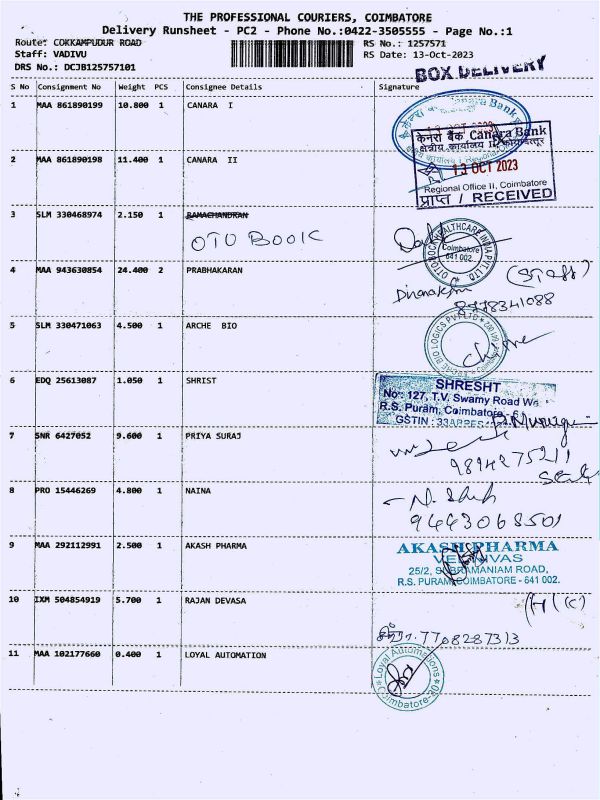 THE PROFESSIONAL COURIERS, COIMBATORE
Delivery Runsheet - PC2 - Phone No.:0422-3505555 - Page No.:1
Route: COKKAMPUDUR ROAD
RS No.: 1257571
Staff: VADIVU
RS Date: 13-Oct-2023
DRS No.: DCJB125757101
BOX DELIVERY
S No Consignment No Weight PCS Consignee Details Signature
1 MAA 861890199 10.800 1 CANARA I
Canara Bank
केनरा बैंक Canara Bank
2 MAA 861890198 11.400 1 CANARA II
13 OCT 2023
Regional Office II, Coimbatore
प्राप्त / RECEIVED
3 SLM 330468974 2.150 1 RAMACHANDRAN
OTTO BOOK
Coimbatore
641 002.
4 MAA 943630854 24.400 2 PRABHAKARAN
(Staff)
8778341088
5 SLM 330471063 4.500 1 ARCHE BIO
6 EDQ 25613087 1.050 1 SHRIST
SHRESHT
No: 127, T.V. Swamy Road
R.S. Puram, Coimbatore
GSTIN :
7 SNR 6427052 9.600 1 PRIYA SURAJ
9894275211
8 PRO 15446269 4.800 1 NAINA
9443068501
9 MAA 292112991 2.500 1 AKASH PHARMA
AKASH PHARMA
25/2, SUBRAMANIAM ROAD,
R.S. PURAM, COIMBATORE - 641 002.
10 IXM 504854919 5.700 1 RAJAN DEVASA
7708287313
11 MAA 102177660 0.400 1 LOYAL AUTOMATION
Loyal Automations
Coimbatore-20